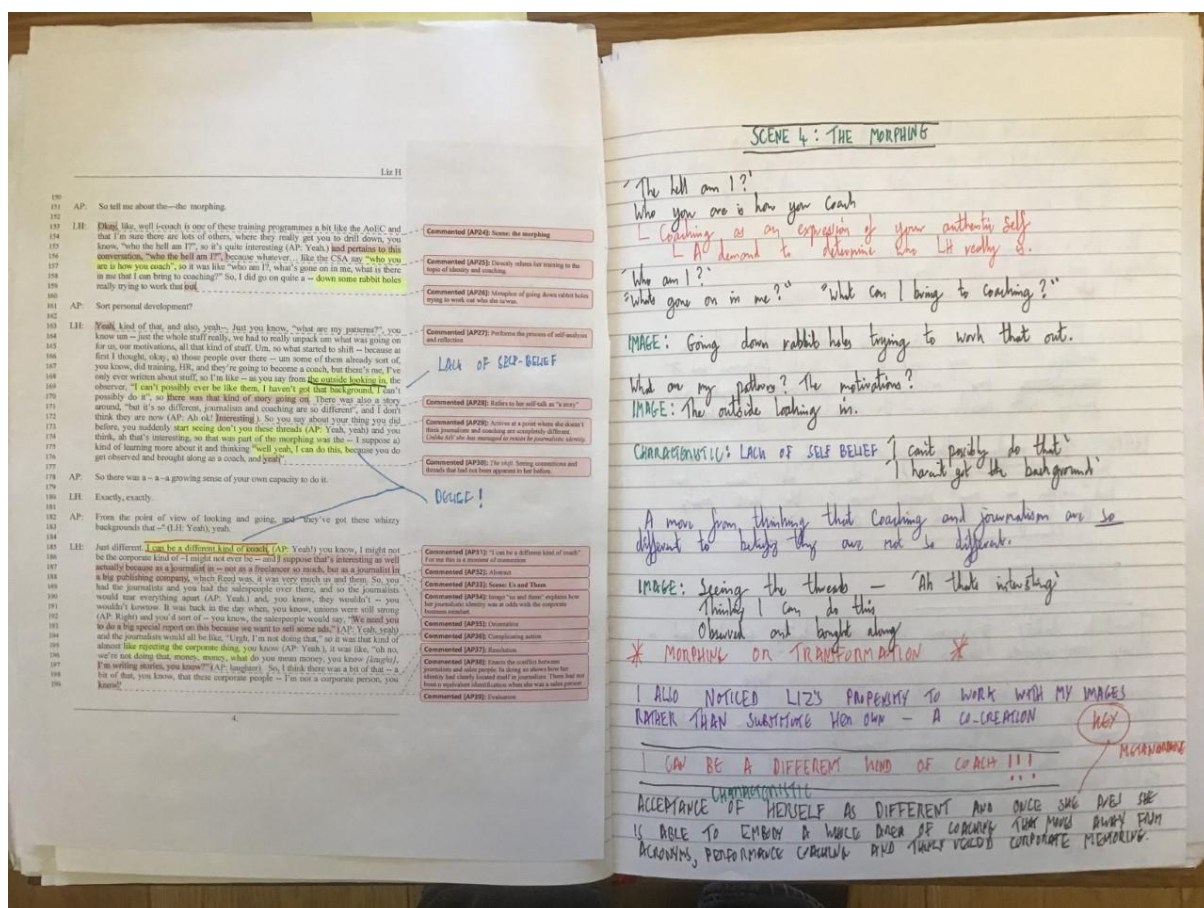 Liz H
150
151 AP: So tell me about the—the morphing.
152
153 LH: Okay, like, well i-coach is one of these training programmes a bit like the AoEC and
154 that I'm sure there are lots of others, where they really get you to drill down, you
155 know, "who the hell am I?", so it's quite interesting (AP: Yeah.) and pertains to this
156 conversation, "who the hell am I?", because whatever… like the CSA say "who you
157 are is how you coach", so it was like "who am I?, what's gone on in me, what is there
158 in me that I can bring to coaching?" So, I did go on quite a -- down some rabbit holes
159 really trying to work that out.
160
161 AP: Sort personal development?
162
163 LH: Yeah, kind of that, and also, yeah--. Just you know, "what are my patterns?", you
164 know um -- just the whole stuff really, we had to really unpack um what was going on
165 for us, our motivations, all that kind of stuff. Um, so what started to shift -- because at
166 first I thought, okay, a) those people over there -- um some of them already sort of,
167 you know, did training, HR, and they're going to become a coach, but there's me, I've
168 only ever written about stuff, so I'm like -- as you say from the outside looking in, the
169 observer, "I can't possibly ever be like them, I haven't got that background, I can't
170 possibly do it", so there was that kind of story going on. There was also a story
171 around, "but it's so different, journalism and coaching are so different", and I don't
172 think they are now (AP: Ah ok! Interesting.). So you say about your thing you did
173 before, you suddenly start seeing don't you these threads (AP: Yeah, yeah) and you
174 think, ah that's interesting, so that was part of the morphing was the -- I suppose a)
175 kind of learning more about it and thinking "well yeah, I can do this, because you do
176 get observed and brought along as a coach, and yeah".
177
178 AP: So there was a – a –a growing sense of your own capacity to do it.
179
180 LH: Exactly, exactly.
181
182 AP: From the point of view of looking and going, and "they've got these whizzy
183 backgrounds that --" (LH: Yeah), yeah.
184
185 LH: Just different. I can be a different kind of coach, (AP: Yeah!) you know, I might not
186 be the corporate kind of --I might not ever be -- and I suppose that's interesting as well
187 actually because as a journalist in -- not as a freelancer so much, but as a journalist in
188 a big publishing company, which Reed was, it was very much us and them. So, you
189 had the journalists and you had the salespeople over there, and so the journalists
190 would tear everything apart (AP: Yeah.) and, you know, they wouldn't -- you
191 wouldn't kowtow. It was back in the day when, you know, unions were still strong
192 (AP: Right) and you'd sort of -- you know, the salespeople would say, "We need you
193 to do a big special report on this because we want to sell some ads," (AP: Yeah, yeah)
194 and the journalists would all be like, "Urgh, I'm not doing that," so it was that kind of
195 almost like rejecting the corporate thing, you know (AP: Yeah.), it was like, "oh no,
196 we're not doing that, money, money, what do you mean money, you know [laughs],
197 I'm writing stories, you know?" (AP: laughter). So, I think there was a bit of that -- a
198 bit of that, you know, that these corporate people -- I'm not a corporate person, you
199 know?
4.
Commented [AP24]: Scene: the morphing
Commented [AP25]: Directly relates her training to the
topic of identity and coaching.
Commented [AP26]: Metaphor of going down rabbit holes
trying to work out who she is/was.
Commented [AP27]: Performs the process of self-analysis
and reflection
LACK OF SELF-BELIEF
Commented [AP28]: Refers to her self-talk as "a story"
Commented [AP29]: Arrives at a point where she doesn't
think journalism and coaching are completely different.
Unlike ME she has managed to retain be journalistic identity.
Commented [AP30]: The shift. Seeing connections and
threads that had not been apparent to her before.
BELIEF!
Commented [AP31]: "I can be a different kind of coach"
For me this is a moment of connection
Commented [AP32]: Abstract
Commented [AP33]: Scene: Us and Them
Commented [AP34]: Image "us and them" explains how
her journalistic identity was at odds with the corporate
business mindset.
Commented [AP35]: Orientation
Commented [AP36]: Complicating action
Commented [AP37]: Resolution
Commented [AP38]: Enacts the conflict between
journalists and sales people. In doing so shows how her
identity had clearly located itself in journalism. There had not
been a equivalent identification when she was a sales person
Commented [AP39]: Evaluation
SCENE 4: THE MORPHING
"The hell am I?"
Who you are is how you coach
Coaching as an expression of your authentic self
A demand to determine who LH really is.
"Who am I?"
"What's gone on in me?" "What can I bring to coaching?"
IMAGE: Going down rabbit holes trying to work that out.
What are my patterns? The motivations?
IMAGE: The outside looking in.
CHARACTERISTIC: LACK OF SELF BELIEF 'I can't possibly do that'
'I haven't got the background'
A move from thinking that Coaching and journalism are so
different to believing they are not so different.
IMAGE: Seeing the threads – 'Ah that's interesting'
Thinking I can do this
Observed and brought along
* MORPHING OR TRANSFORMATION *
I ALSO NOTICED LIZ'S PROPENSITY TO WORK WITH MY IMAGES
RATHER THAN SUBSTITUTE HER OWN – A CO-CREATION
KEY
I CAN BE A DIFFERENT KIND OF COACH !!!
CHARACTERISTIC
ACCEPTANCE OF HERSELF AS DIFFERENT AND ONCE SHE DOES SHE
IS ABLE TO EMBODY A WHOLE AREA OF COACHING THAT MOVES AWAY FROM
ACRONYMS, PERFORMANCE COACHING AND THINLY VEILED CORPORATE MENTORING.